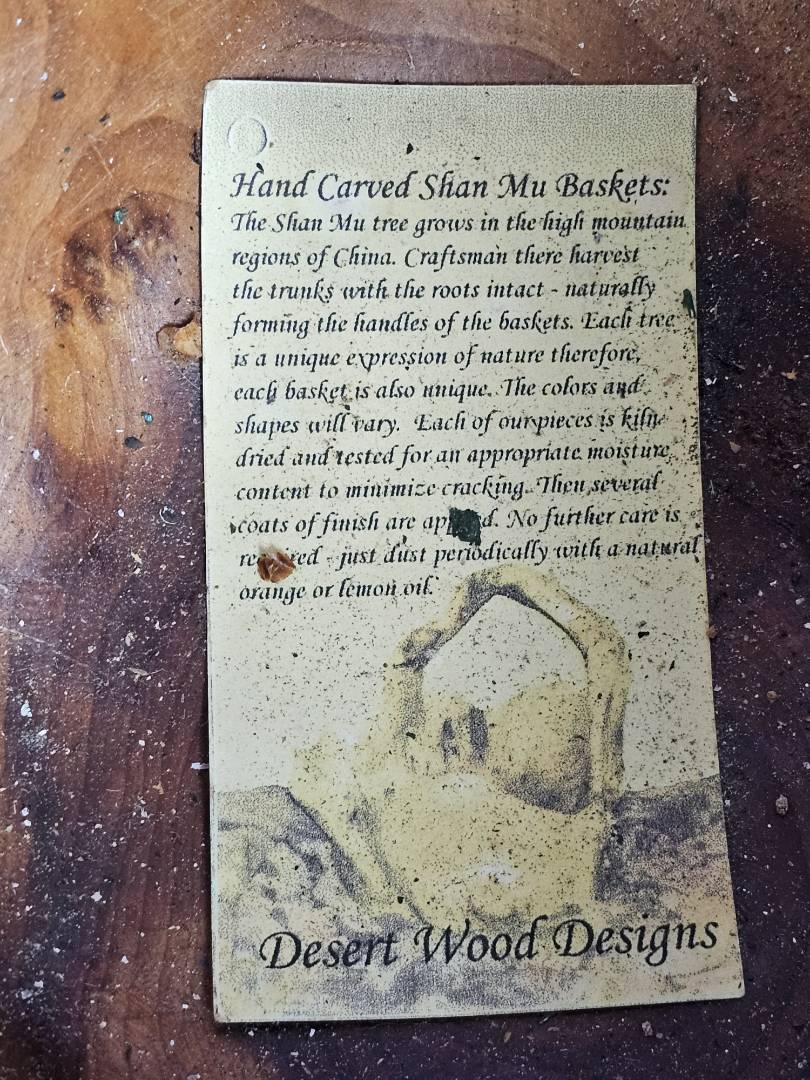 Hand Carved Shan Mu Baskets:
The Shan Mu tree grows in the high mountain
regions of China. Craftsman there harvest
the trunks with the roots intact - naturally
forming the handles of the baskets. Each tree
is a unique expression of nature therefore,
each basket is also unique. The colors and
shapes will vary. Each of our pieces is kiln
dried and tested for an appropriate moisture
content to minimize cracking. Then several
coats of finish are applied. No further care is
required - just dust periodically with a natural
orange or lemon oil.
Desert Wood Designs